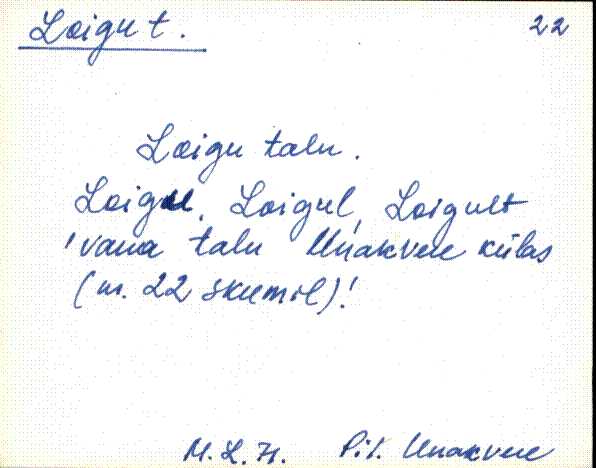 Loigu t. 22
Loigu talu.
Loigu, Loigul, Loigult
'vana talu Unakvere külas
(nr. 22 skeemil)'.
M.L.H. Pit. Unakvere